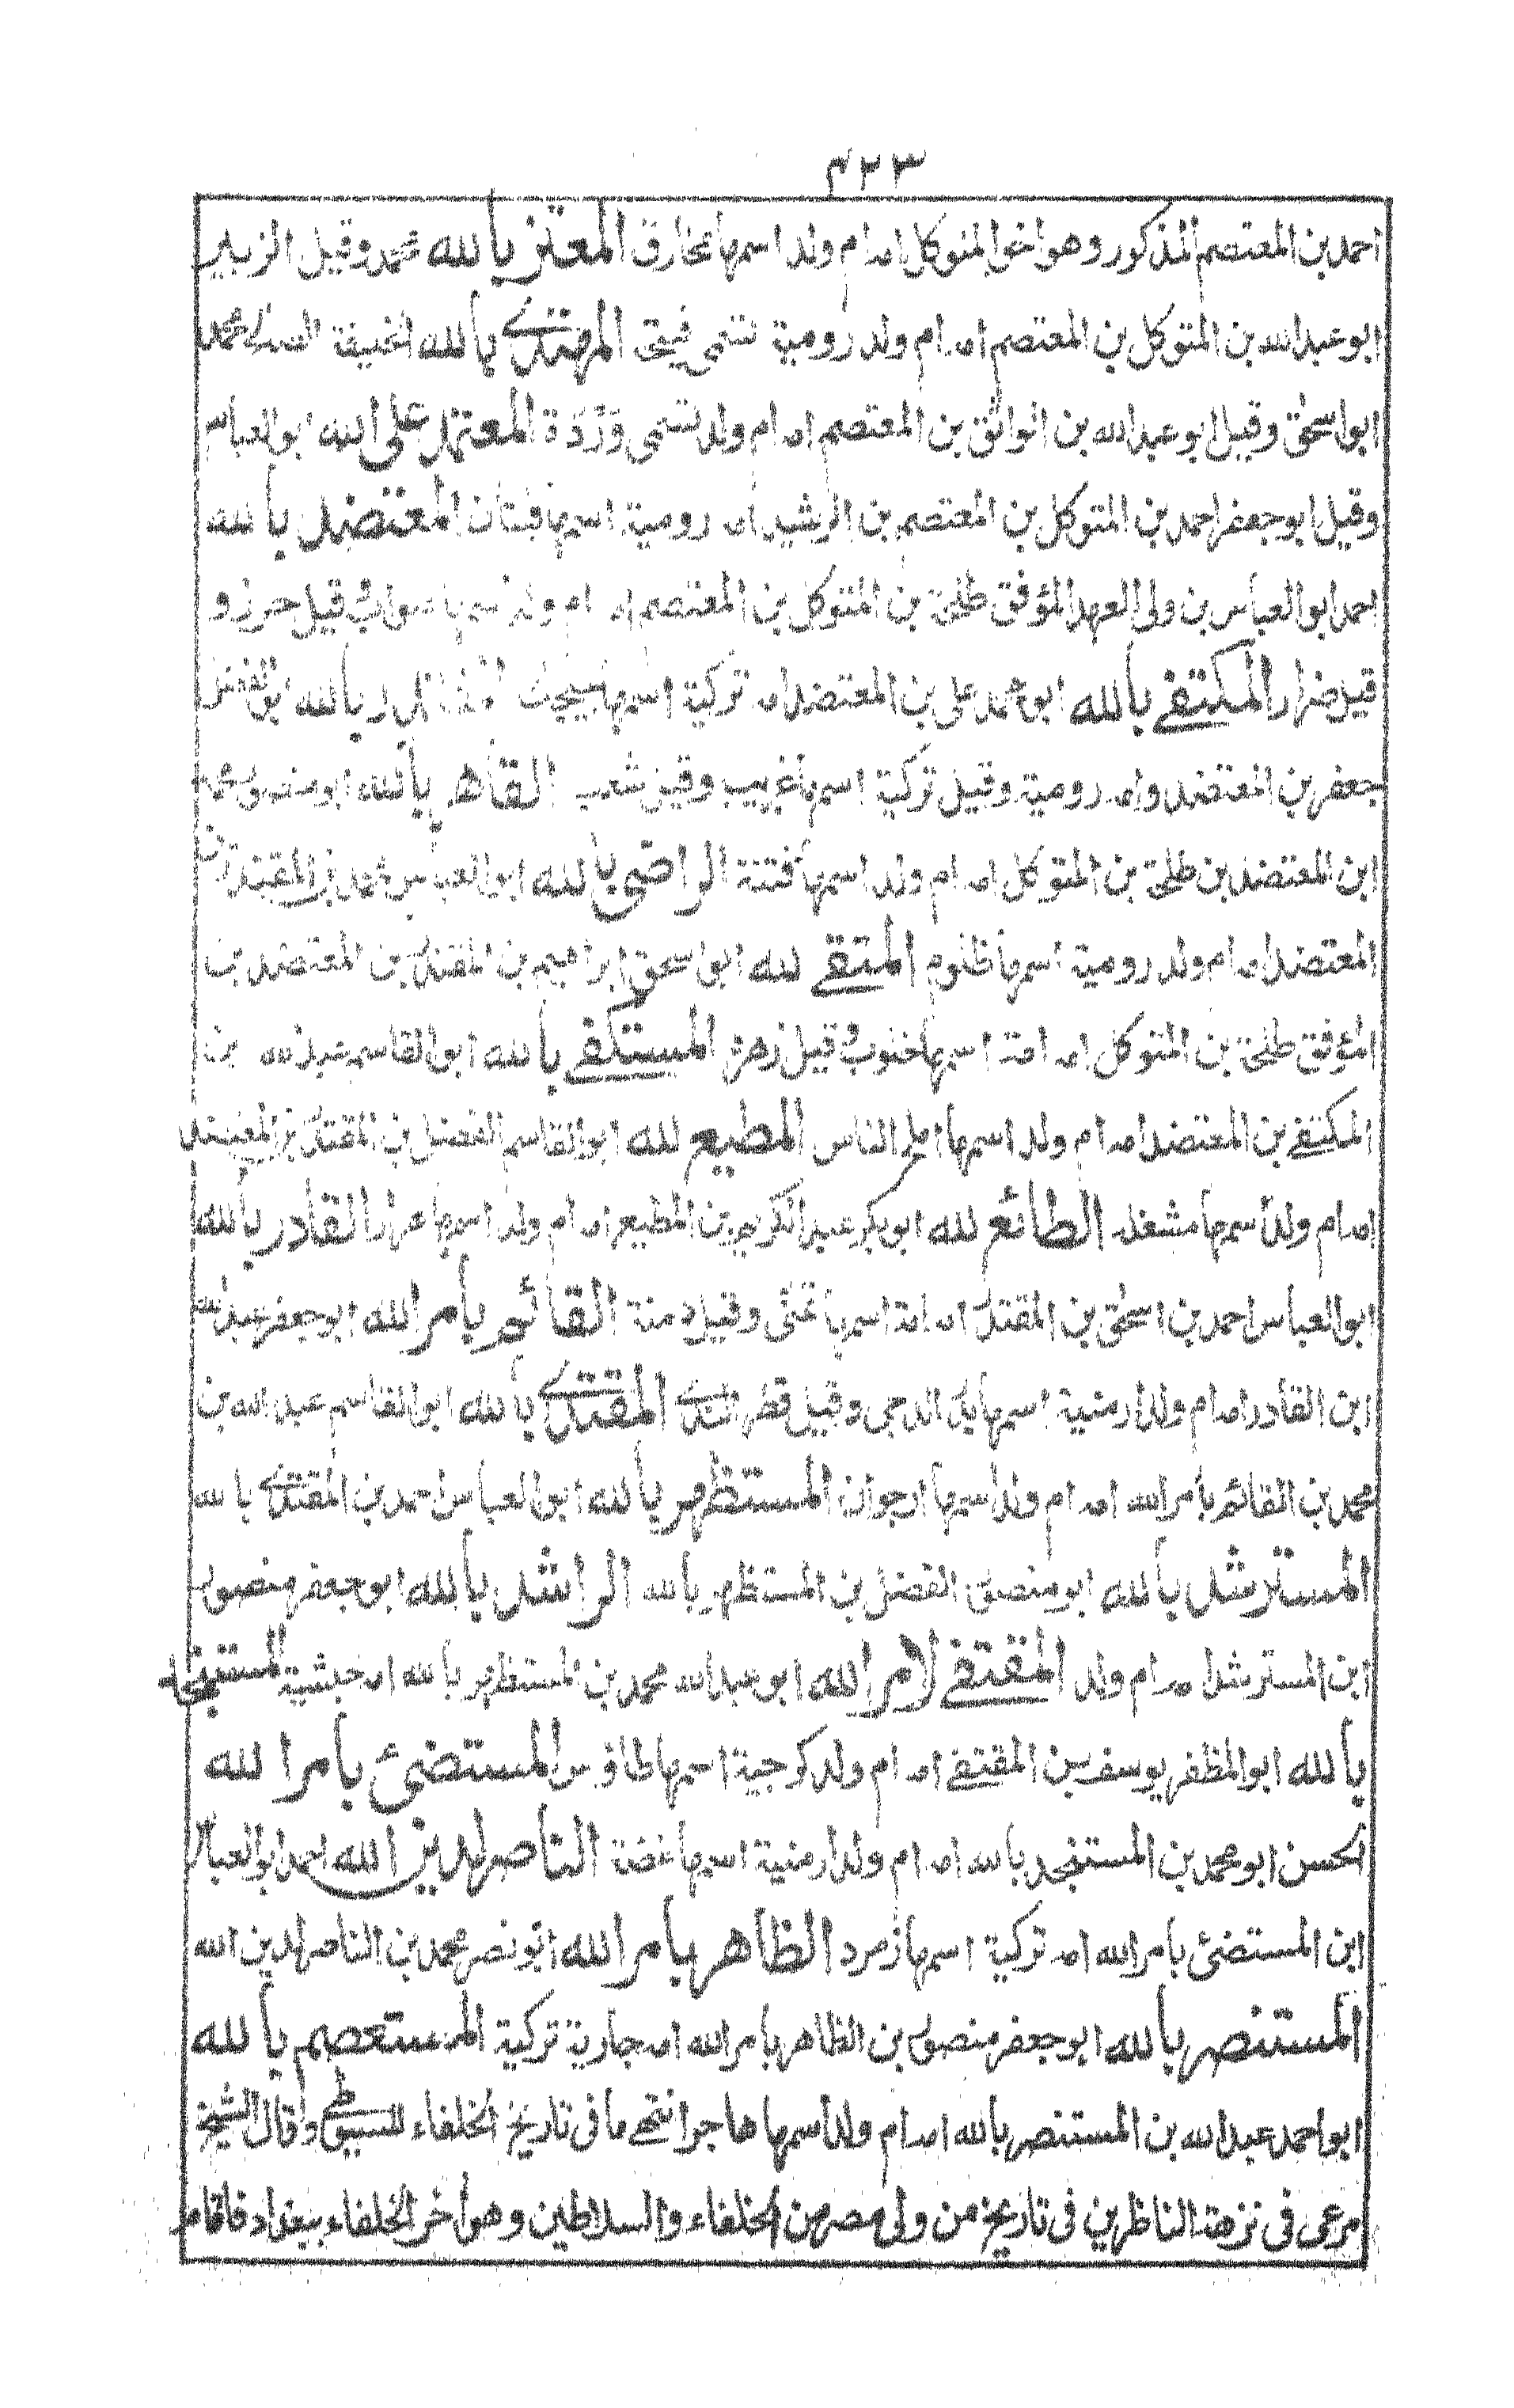 ٤٢٣
احمد بن المعتصم المذكور وهو اخو المتوكل امه ام ولد اسمها مخارق المعتز بالله محمد وقيل الزبير
ابو عبد الله بن المتوكل بن المعتصم امه ام ولد رومية تسمى قبيحة المهتدى بالله الخليفة الصالح محمد
ابو اسحق وقيل ابو عبد الله بن الواثق بن المعتصم امه ام ولد تسمى وَرْدَة المعتمد على الله ابو العباس
وقيل ابو جعفر احمد بن المتوكل بن المعتصم بن الرشيد امه رومية اسمها فتيان المعتضد بالله
احمد ابو العباس بن ولى العهد الموفق طلحة بن المتوكل بن المعتصم امه ام ولد اسمها صواب وقيل حرز و
قيل ضرار المكتفى بالله ابو محمد على بن المعتضد امه تركية اسمها جيجك المقتدر بالله ابو الفضل
جعفر بن المعتضد وامه رومية وقيل تركية اسمها غريب وقيل شعب القاهر بالله ابو منصور محمد
ابن المعتضد بن طلحة بن المتوكل امه ام ولد اسمها فتنة الراضى بالله ابو العباس محمد بن المقتدر بن
المعتضد امه ام ولد رومية اسمها ظلوم المتقى لله ابو اسحق ابراهيم بن المقتدر بن المعتضد بن
الموفق طلحة بن المتوكل امه امة اسمها خلوب وقيل زهرة المستكفى بالله ابو القاسم عبد الله بن
المكتفى بن المعتضد امه ام ولد اسمها املح الناس المطيع لله ابو القاسم الفضل بن المقتدر بن المعتضد
امه ام ولد اسمها مشغلة الطائع لله ابو بكر عبد الكريم بن المطيع امه ام ولد اسمها هزار القادر بالله
ابو العباس احمد بن اسحق بن المقتدر امه امة اسمها تمنّى وقيل دمنة القائم بامر الله ابو جعفر عبد الله
ابن القادر امه ام ولد ارمنية اسمها بدر الدجى وقيل قطر الندى المقتدى بالله ابو القاسم عبد الله بن
محمد بن القائم بامر الله امه ام ولد اسمها ارجوان المستظهر بالله ابو العباس احمد بن المقتدى بالله
المسترشد بالله ابو منصور الفضل بن المستظهر بالله الراشد بالله ابو جعفر منصور
ابن المسترشد امه ام ولد المقتفى لامر الله ابو عبد الله محمد بن المستظهر بالله امه حبشية المستنجد
بالله ابو المظفر يوسف بن المقتفى امه ام ولد كرجية اسمها طاؤس المستضئ بامر الله
الحسن ابو محمد بن المستنجد بالله امه ام ولد ارمنية اسمها غضة الناصر لدين الله احمد ابو العباس
ابن المستضئ بامر الله امه تركية اسمها زمرد الظاهر بامر الله ابو نصر محمد بن الناصر لدين الله
المستنصر بالله ابو جعفر منصور بن الظاهر بامر الله امه جارية تركية المستعصم بالله
ابو احمد عبد الله بن المستنصر بالله امه ام ولد اسمها هاجر انتهى ما فى تاريخ الخلفاء للسيوطى وقال الشيخ
مرعى فى نزهة الناظرين فى تاريخ من ولى مصر من الخلفاء والسلاطين وهو آخر الخلفاء ببغداد فاقام